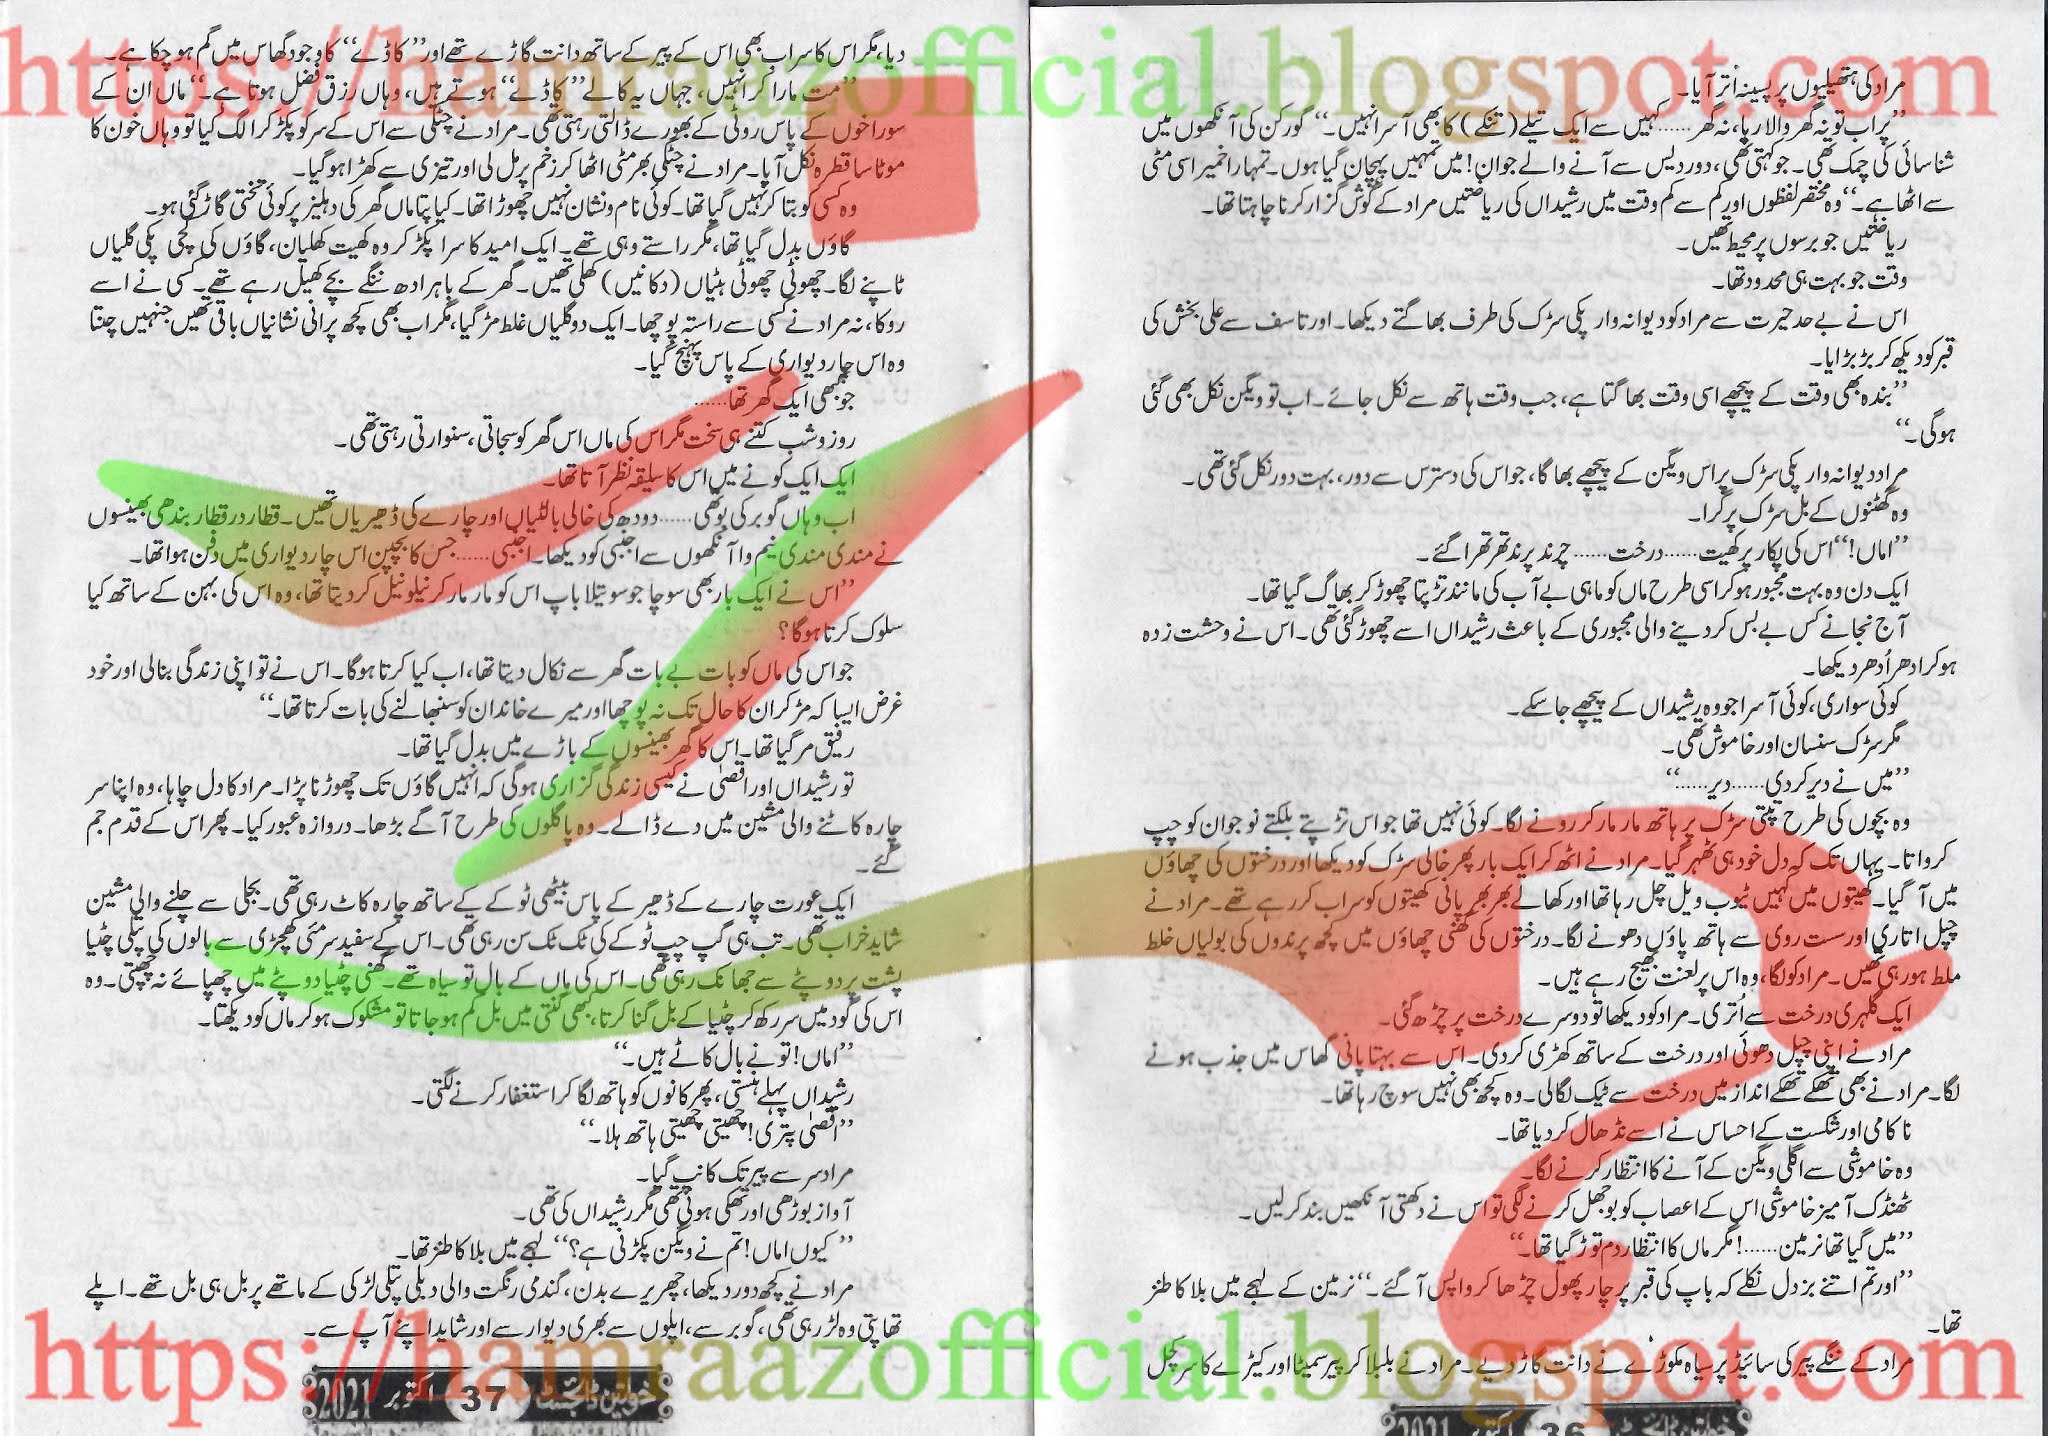 https://hamraazofficial.blogspot.com
مراد کی ہتھیلیوں پر پسینہ اُتر آیا۔
”پر اب تو یہ گھر والا رہا، نہ گھر ...... کہیں سے ایک تیلے (تنکے) کا بھی آسرا نہیں۔“ گورکن کی آنکھوں میں
شناسائی کی چمک تھی۔ جو کہتی تھی، دور دیس سے آنے والے جوان! میں تمہیں پہچان گیا ہوں۔ تمہارا خمیر اسی مٹی
سے اٹھا ہے۔“ وہ مختصر لفظوں اور کم سے کم وقت میں رشیداں کی ریاضتیں مراد کے گوش گزار کرنا چاہتا تھا۔
ریاضتیں جو برسوں پر محیط تھیں۔
وقت جو بہت ہی محدود تھا۔
اس نے بے حد حیرت سے مراد کو دیوانہ وار پکی سڑک کی طرف بھاگتے دیکھا۔ اور تاسف سے علی بخش کی
قبر کو دیکھ کر بڑبڑایا۔
”بندہ بھی وقت کے پیچھے اسی وقت بھاگتا ہے، جب وقت ہاتھ سے نکل جائے۔ اب تو ویگن نکل بھی گئی
ہوگی۔“
مراد دیوانہ وار پکی سڑک پر اس ویگن کے پیچھے بھاگا، جو اس کی دسترس سے دور، بہت دور نکل گئی تھی۔
وہ گھٹنوں کے بل سڑک پر گرا۔
”اماں!“ اس کی پکار پر کھیت ...... درخت ...... چرند پرند تھرتھرا گئے۔
ایک دن وہ بہت مجبور ہو کر اسی طرح ماں کو ماہی بے آب کی مانند تڑپتا چھوڑ کر بھاگ گیا تھا۔
آج نجانے کس بے بس کر دینے والی مجبوری کے باعث رشیداں اسے چھوڑ گئی تھی۔ اس نے وحشت زدہ
ہو کر ادھر اُدھر دیکھا۔
کوئی سواری، کوئی آسرا جو وہ رشیداں کے پیچھے جا سکے۔
مگر سڑک سنسان اور خاموش تھی۔
”میں نے دیر کر دی ...... دیر ......“
وہ بچوں کی طرح تپتی سڑک پر ہاتھ مار مار کر رونے لگا۔ کوئی نہیں تھا جو اس تڑپتے بلکتے نوجوان کو چپ
کرواتا۔ یہاں تک کہ دل خود ہی ٹھہر گیا۔ مراد نے اٹھ کر ایک بار پھر خالی سڑک کو دیکھا اور درختوں کی چھاؤں
میں آ گیا۔ کھیتوں میں کہیں ٹیوب ویل چل رہا تھا اور کھالے بھر بھر پانی کھیتوں کو سراب کر رہے تھے۔ مراد نے
چپل اتاری اور سست روی سے ہاتھ پاؤں دھونے لگا۔ درختوں کی گھنی چھاؤں میں کچھ پرندوں کی بولیاں خلط
ملط ہو رہی تھیں۔ مراد کو لگا، وہ اس پر لعنت بھیج رہے ہیں۔
ایک گلہری درخت سے اُتری۔ مراد کو دیکھا تو دوسرے درخت پر چڑھ گئی۔
مراد نے اپنی چپل دھوئی اور درخت کے ساتھ کھڑی کر دی۔ اس سے بہتا پانی گھاس میں جذب ہونے
لگا۔ مراد نے بھی تھکے تھکے انداز میں درخت سے ٹیک لگالی۔ وہ کچھ بھی نہیں سوچ رہا تھا۔
ناکامی اور شکست کے احساس نے اسے نڈھال کر دیا تھا۔
وہ خاموشی سے اگلی ویگن کے آنے کا انتظار کرنے لگا۔
ٹھنڈک آمیز خاموشی اس کے اعصاب کو بوجھل کرنے لگی تو اس نے دکھتی آنکھیں بند کر لیں۔
”میں گیا تھا نرمین ......! مگر ماں کا انتظار دم توڑ گیا تھا۔“
”اور تم اتنے بزدل نکلے کہ باپ کی قبر پر چار پھول چڑھا کر واپس آ گئے۔“ نرمین کے لہجے میں بلا کا طنز
تھا۔
مراد کے ننگے پیر کی سائیڈ پر سیاہ مکوڑے نے دانت گاڑ دیے۔ مراد نے بلبلا کر پیر سمیٹا اور کیڑے کا سر کچل
خواتین ڈائجسٹ 36 اکتوبر 2021
دیا، مگر اس کا سراب بھی اس کے پیر کے ساتھ دانت گاڑے تھے اور ”کاڈے“ کا وجود گھاس میں گم ہو چکا ہے۔
”مت مارا کر انہیں، جہاں یہ کالے ”کاڈے“ ہوتے ہیں، وہاں رزق فضل ہوتا ہے۔“ ماں ان کے
سوراخوں کے پاس روٹی کے بھورے ڈالتی رہتی تھی۔ مراد نے چٹکی سے اس کے سر کو پکڑ کر الگ کیا تو وہاں خون کا
موٹا سا قطرہ نکل آیا۔ مراد نے چٹکی بھر مٹی اٹھا کر زخم پر مل لی اور تیزی سے کھڑا ہو گیا۔
وہ کسی کو بتا کر نہیں گیا تھا۔ کوئی نام و نشان نہیں چھوڑا تھا۔ کیا پتا ماں گھر کی دہلیز پر کوئی تختی گاڑ گئی ہو۔
گاؤں بدل گیا تھا، مگر راستے وہی تھے۔ ایک امید کا سرا پکڑ کر وہ کھیت کھلیان، گاؤں کی کچی پکی گلیاں
ٹاپنے لگا۔ چھوٹی چھوٹی ہٹیاں (دکانیں) کھلی تھیں۔ گھر کے باہر ادھ ننگے بچے کھیل رہے تھے۔ کسی نے اسے
روکا، نہ مراد نے کسی سے راستہ پوچھا۔ ایک دو گلیاں غلط مڑ گیا، مگر اب بھی کچھ پرانی نشانیاں باقی تھیں جنہیں چنتا
وہ اس چار دیواری کے پاس پہنچ گیا۔
جو کبھی ایک گھر تھا ......
روز و شب کتنے ہی سخت مگر اس کی ماں اس گھر کو سجاتی، سنوارتی رہتی تھی۔
ایک ایک کونے میں اس کا سلیقہ نظر آتا تھا۔
اب وہاں گوبر کی بو تھی ...... دودھ کی خالی بالٹیاں اور چارے کی ڈھیریاں تھیں۔ قطار در قطار بندھی بھینسوں
نے مندی مندی نیم وا آنکھوں سے اجنبی کو دیکھا۔ اجنبی ...... جس کا بچپن اس چار دیواری میں دفن ہوا تھا۔
”اس نے ایک بار بھی سوچا جو سوتیلا باپ اس کو مار مار کر نیلو نیل کر دیتا تھا، وہ اس کی بہن کے ساتھ کیا
سلوک کرتا ہوگا؟
جو اس کی ماں کو بات بے بات گھر سے نکال دیتا تھا، اب کیا کرتا ہوگا۔ اس نے تو اپنی زندگی بنالی اور خود
غرض ایسا کہ مڑ کر ان کا حال تک نہ پوچھا اور میرے خاندان کو سنبھالنے کی بات کرتا تھا۔“
رفیق مر گیا تھا۔ اس کا گھر بھینسوں کے باڑے میں بدل گیا تھا۔
تو رشیداں اور اقصیٰ نے کیسی زندگی گزاری ہوگی کہ انہیں گاؤں تک چھوڑنا پڑا۔ مراد کا دل چاہا، وہ اپنا سر
چارہ کاٹنے والی مشین میں دے ڈالے۔ وہ پاگلوں کی طرح آگے بڑھا۔ دروازہ عبور کیا۔ پھر اس کے قدم جم
گئے۔
ایک عورت چارے کے ڈھیر کے پاس بیٹھی ٹوکے کے ساتھ چارہ کاٹ رہی تھی۔ بجلی سے چلنے والی مشین
شاید خراب تھی۔ تب ہی گپ چپ ٹوکے کی ٹک ٹک سن رہی تھی۔ اس کے سفید سرمئی کھچڑی سے بالوں کی پتلی چٹیا
پشت پر دوپٹے سے جھانک رہی تھی۔ اس کی ماں کے بال تو سیاہ تھے۔ گھنی چٹیا دوپٹے میں چھپائے نہ چھپتی۔ وہ
اس کی گود میں سر رکھ کر چٹیا کے بل گنا کرتا، کبھی گنتی میں بل کم ہو جاتا تو مشکوک ہو کر ماں کو دیکھتا۔
”اماں! تو نے بال کاٹے ہیں۔“
رشیداں پہلے ہنستی، پھر کانوں کو ہاتھ لگا کر استغفار کرنے لگتی۔
”اقصیٰ پتری! چھیتی چھیتی ہاتھ ہلا۔“
مراد سر سے پیر تک کانپ گیا۔
آواز بوڑھی اور تھکی ہوئی تھی مگر رشیداں کی تھی۔
”کیوں اماں! تم نے ویگن پکڑنی ہے؟“ لہجے میں بلا کا طنز تھا۔
مراد نے کچھ دور دیکھا، چھریرے بدن، گندمی رنگت والی دبلی پتلی لڑکی کے ماتھے پر بل ہی بل تھے۔ اپلے
تھاپتی وہ لڑ رہی تھی، گوبر سے، اپلوں سے بھری دیوار سے اور شاید اپنے آپ سے۔
خواتین ڈائجسٹ 37 اکتوبر 2021
https://hamraazofficial.blogspot.com